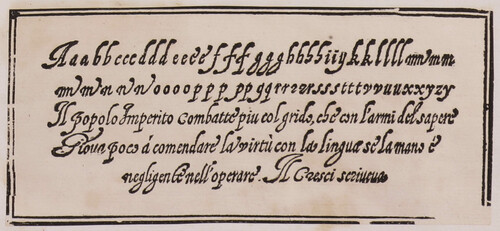 Aaabbcccdddeeeefffgggghhhhiiijkkllllmmmm
mmmnnnooooppppppqqrrrrrssssttttvvuuxxyzy
Il popolo Imperito Combatte piu col grido, che con l'armi del sapere
Giova poco á comendare la virtù con la lingua se la mano è
negligente nell'operare. Il Cresci scriveua